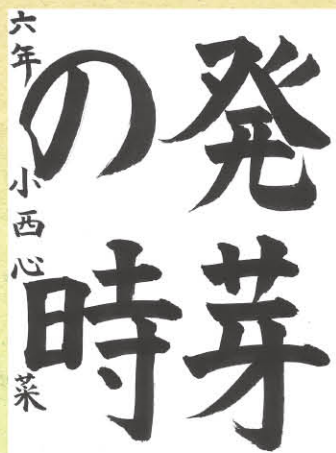 発芽
の時
六年 小西心菜